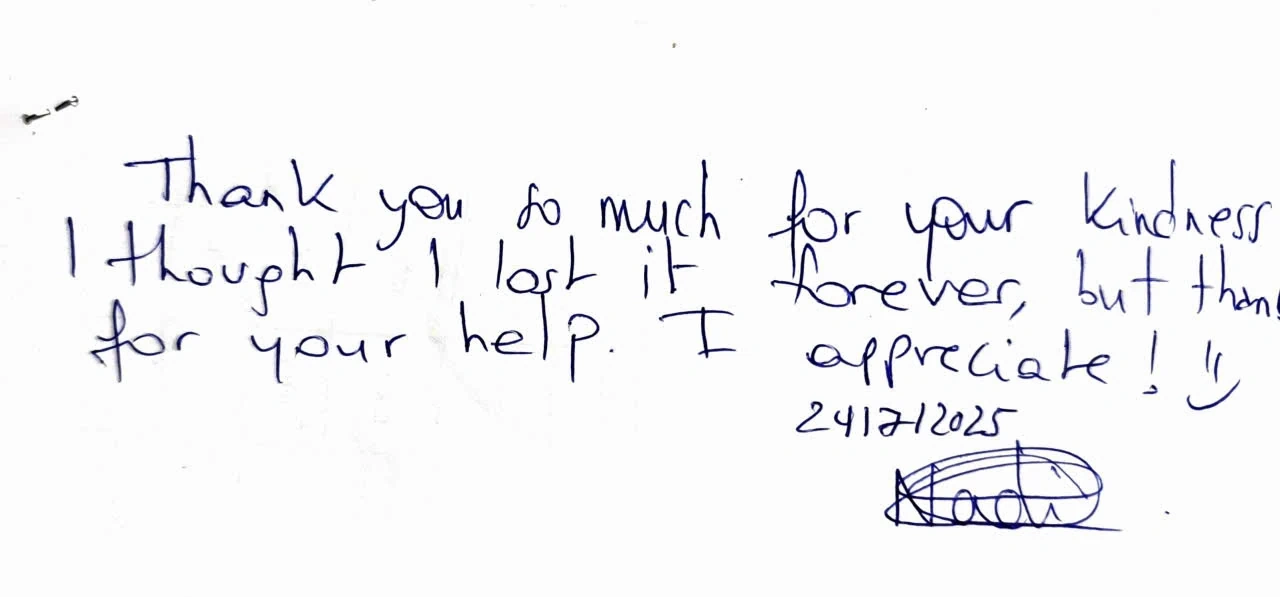 Thank you so much for your kindness
I thought I lost it forever, but thank
for your help. I appreciate! :)
24/7/2025
Hadi